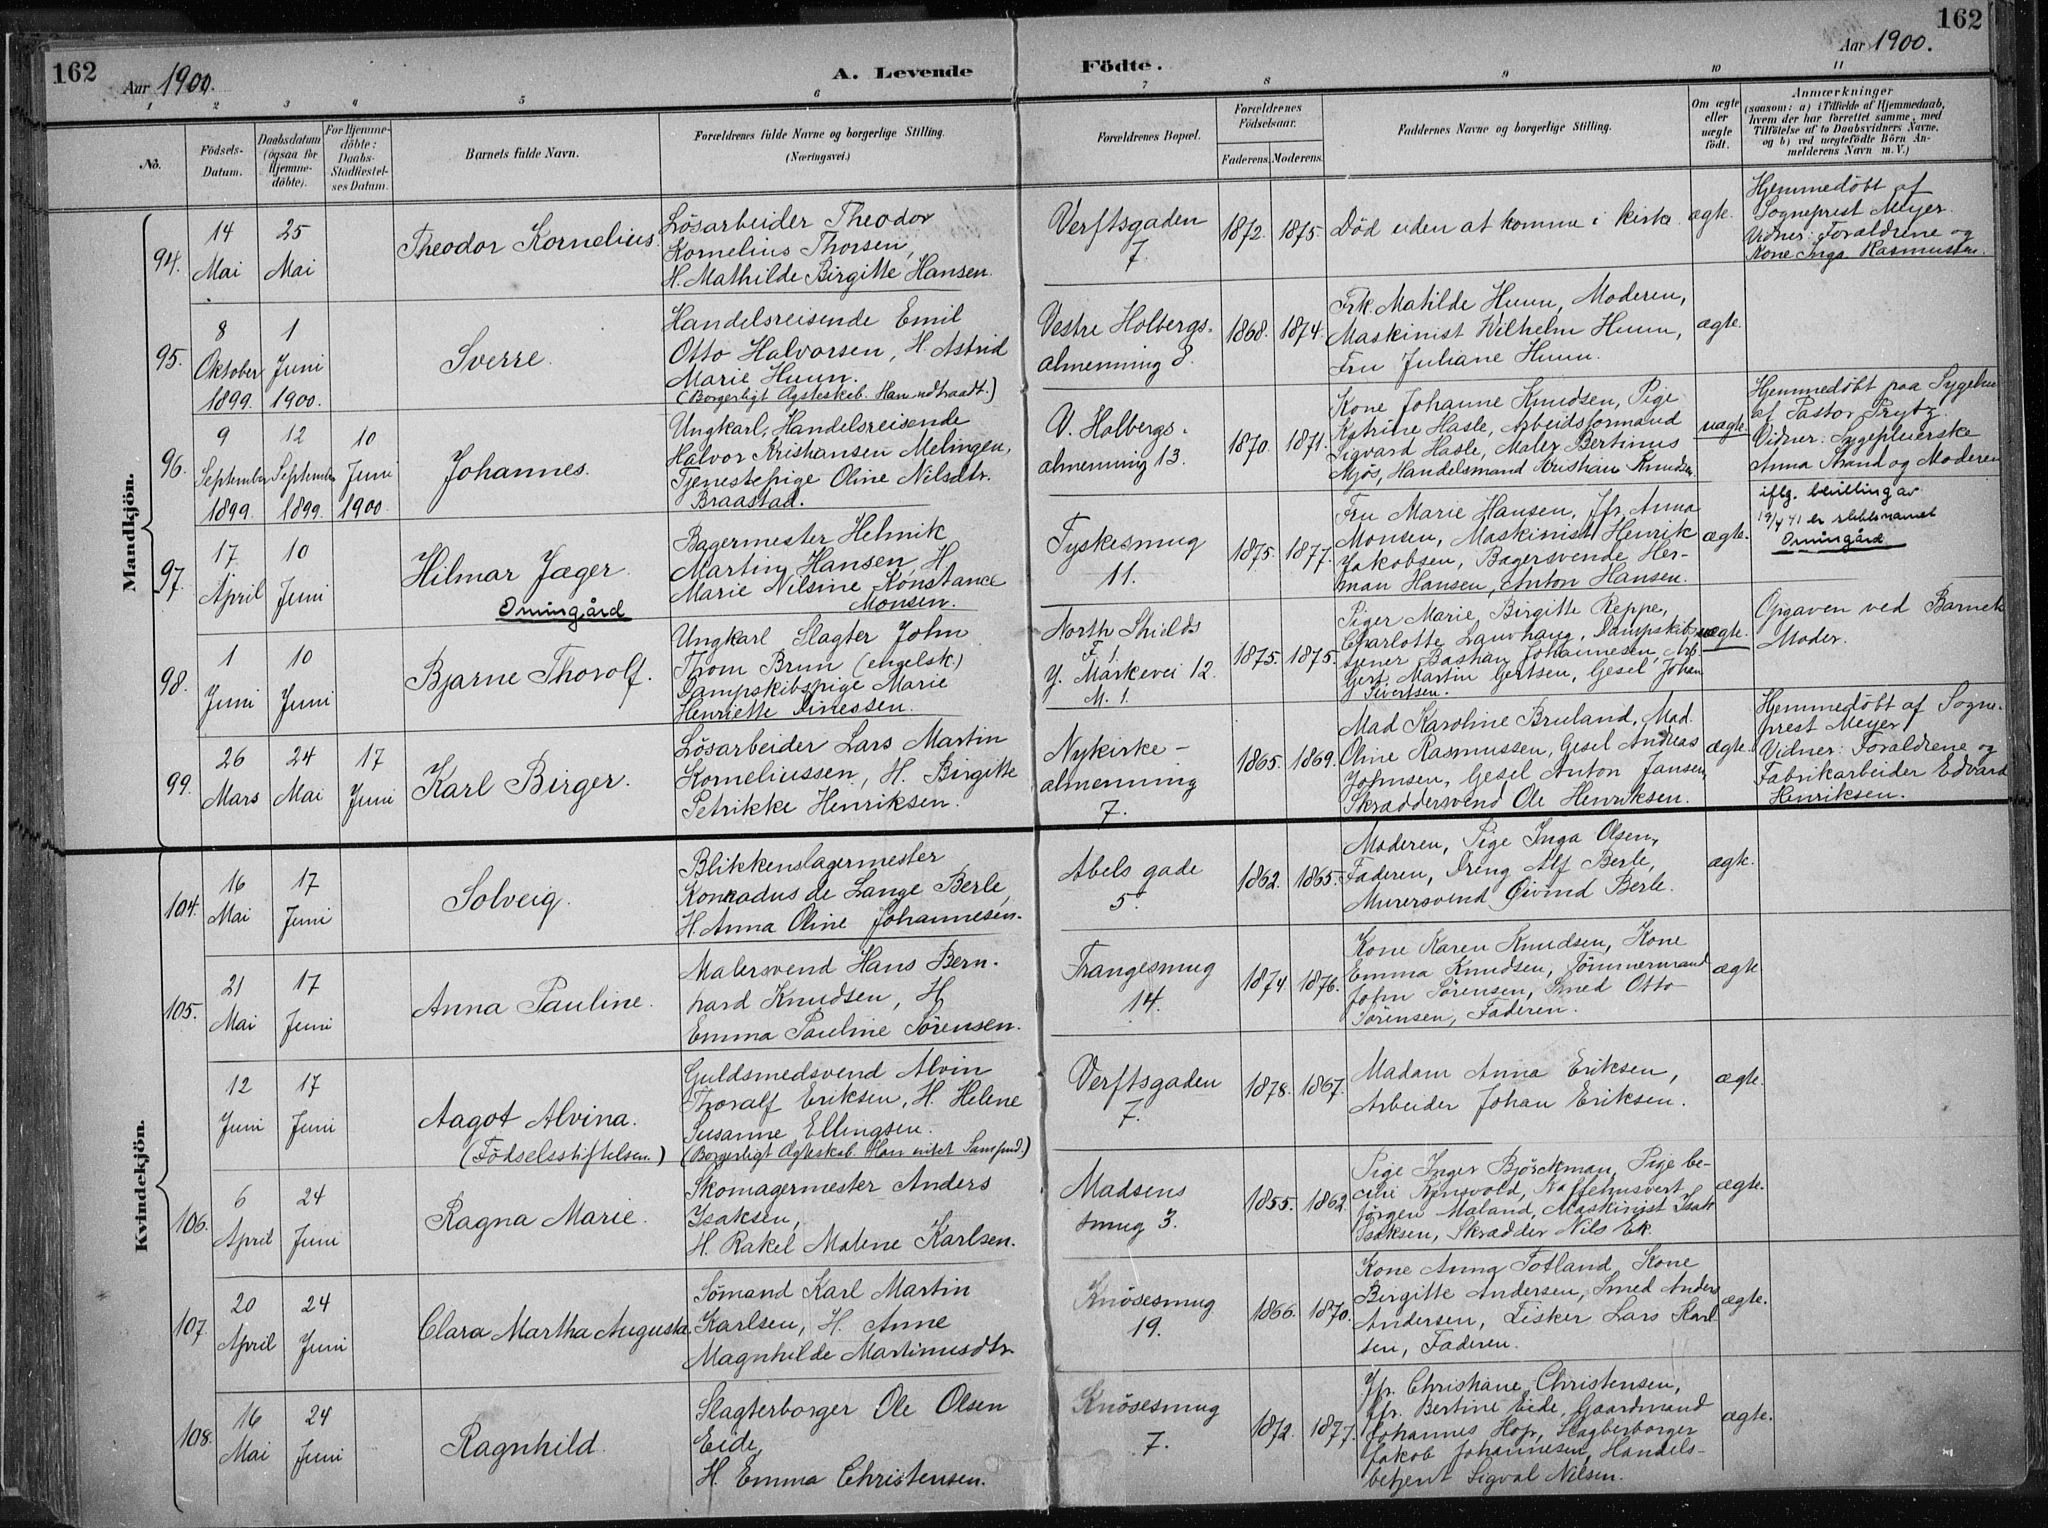 162
Aar 1900.
A. Levende
Födte.
Aar 1900.
162
1
2
3
4
5
6
7
8
9
10
11
No.
Födsels-
Datum.
Daabsdatum
(ogsaa for
Hjemme-
döbte).
For Hjemme-
döbte:
Daabs-
Stadfæstel-
ses Datum.
Barnets fulde Navn.
Forældrenes fulde Navne og borgerlige Stilling.
(Næringsvei.)
Forældrenes Bopæl.
Forældrenes
Födselsaar.
Faderens.
Moderens.
Faddernes Navne og borgerlige Stilling.
Om ægte
eller
uægte
födt.
Anmærkninger
(saasom: a) i Tilfælde af Hjemmedaab,
hvem der har forrettet samme, med
Tilföielse af to Daabsvidners Navne,
og b) ved uægtefödte Börn An-
melderens Navn m. V.)
Mandkjön.
94.
14
Mai
25
Mai
Theodor Kornelius.
Lösarbeider Theodor
Kornelius Thorsen,
H. Mathilde Birgitte Hansen.
Verftsgaden
7.
1872.
1875.
Död uden at komme i kirke.
ægte.
Hjemmedøbt af
Sogneprest Meyer.
Vidner: Forældrene og
Kone Inga Rasmussen.
95.
8
Oktober
1899.
1
Juni
1900.
Sverre.
Handelsreisende Emil
Otto Halvorsen, H. Astrid
Marie Huun.
(Borgerligt Ægteskab. Han udtraadt.)
Vestre Holbergs-
almenning 8.
1868.
1874.
Frk. Matilde Huun, Moderen,
Maskinist Wilhelm Huun,
Fru Juliane Huun.
ægte.
96.
9
September
1899.
12
September
1899.
10
Juni
1900.
Johannes.
Ungkarl, Handelsreisende
Halvor Kristiansen Melingen,
Tjenestepige Oline Nilsdtr.
Braastad.
V. Holbergs-
almenning 13.
1870.
1871.
Kone Johanne Knudsen, Pige
Katrine Hasle, Arbeidsformand
Sigvard Hasle, Maler Bertinus
Mjös, Handelsmand Kristian Knudsen
uægte.
Hjemmedøbt paa Sygehu
af Pastor Prytz.
Vidner: Sygepleierske
Anna Strand og Moderen
97.
17
April
10
Juni
Hilmar Jæger.
Orningård
Bagermester Helmik
Martin Hansen, H.
Marie Nilsine Konstance
Monsen.
Tyskesmug
11.
1875.
1877.
Fru Marie Hansen, Jfr. Anna
Monsen, Maskinist Henrik
Jakobsen, Bagersvende Her-
man Hansen, Anton Hansen.
ægte.
iflg. bevilling av
19/4 41 er slektsnavnet
Orningård
98.
1
Juni
10
Juni
Bjarne Thorolf.
Ungkarl Slagter John
Thom Brun (engelsk.)
Dampskibspige Marie
Henriette Dinessen.
North Shields
F.
Y. Markevei 12.
M.
1875.
1875.
Piger Marie Birgitte Reppe,
Charlotte Lauvhaug, Dampskib-
tjener Bastian Johannesen, Arb.
Gert Martin Gertsen, Gesel Johan
Sivertsen.
uægte.
Opgaven ved Barnets
Moder.
99.
26
Mars
24
Mai
17
Juni
Karl Birger.
Lösarbeider Lars Martin
Korneliussen, H. Birgitte
Petrikke Henriksen.
Nykirke-
almenning
7.
1865.
1869.
Mad Karoline Bruland, Mad.
Oline Rasmussen, Gesel Andreas
Johnsen, Gesel Anton Jansen,
Skræddersvend Ole Henriksen.
ægte.
Hjemmedøbt af Sogne-
prest Meyer
Vidner: Forældrene og
Fabrikarbeider Edvard
Henriksen.
Kvindekjön.
104.
16
Mai
17
Juni
Solveig.
Blikkenslagermester
Konradus de Lange Berle,
H. Anna Oline Johannesen.
Abels gade
5.
1862.
1865.
Moderen, Pige Inga Olsen,
Faderen, Dreng Alf Berle,
Murersvend Øivind Berle.
ægte.
105.
21
Mai
17
Juni
Anna Pauline.
Malersvend Hans Bern-
hard Knudsen, H.
Emma Pauline Sörensen.
Trangesmug
14.
1874.
1876.
Kone Karen Knudsen, Kone
Emma Knudsen, Tömmermand
John Sörensen, Smed Otto
Sörensen, Faderen.
ægte
12
Juni
17
Juni
Aagot Alvina.
(Födselsstiftelsen.)
Guldsmedsvend Alvin
Thoralf Eriksen, H. Helene
Susanne Ellingsen.
(Borgerligt Ægteskab. Han udtr. Samfund.)
Verftsgaden
7.
1878.
1867.
Madam Anna Eriksen,
Arbeider Johan Eriksen.
ægte.
106.
6
April
24
Juni
Ragna Marie.
Skomagermester Anders
Isaksen,
H. Rakel Malene Karlsen.
Madsens
smug 3.
1855.
1862.
Pige Inger Björckman, Pige
Kaffehusvert
Jörgen Maland, Maskinist Isak
Isaksen, Skrædder Nils Ek.
ægte.
107.
20
April
24
Juni
Clara Martha Augusta.
Sömand Karl Martin
Karlsen, H. Anne
Magnhilde Martinusdtr.
Knösesmug
19.
1866.
1870.
Kone Anna Totland, Kone
Birgitte Andersen, Smed Anders
Andersen, Fisker Lars Karl
sen, Faderen.
ægte.
108.
16
Mai
24
Juni
Ragnhild.
Slagterborger Ole Olsen
Eide,
H. Emma Christensen.
Knösesmug
7.
1872.
1877.
Jfr. Christiane Christensen,
Jfr. Bertine Eide, Gaardmand
Johannes Hop, Slagterborger
Jakob Johannesen, Handels-
betjent Sigval Nilsen.
ægte.